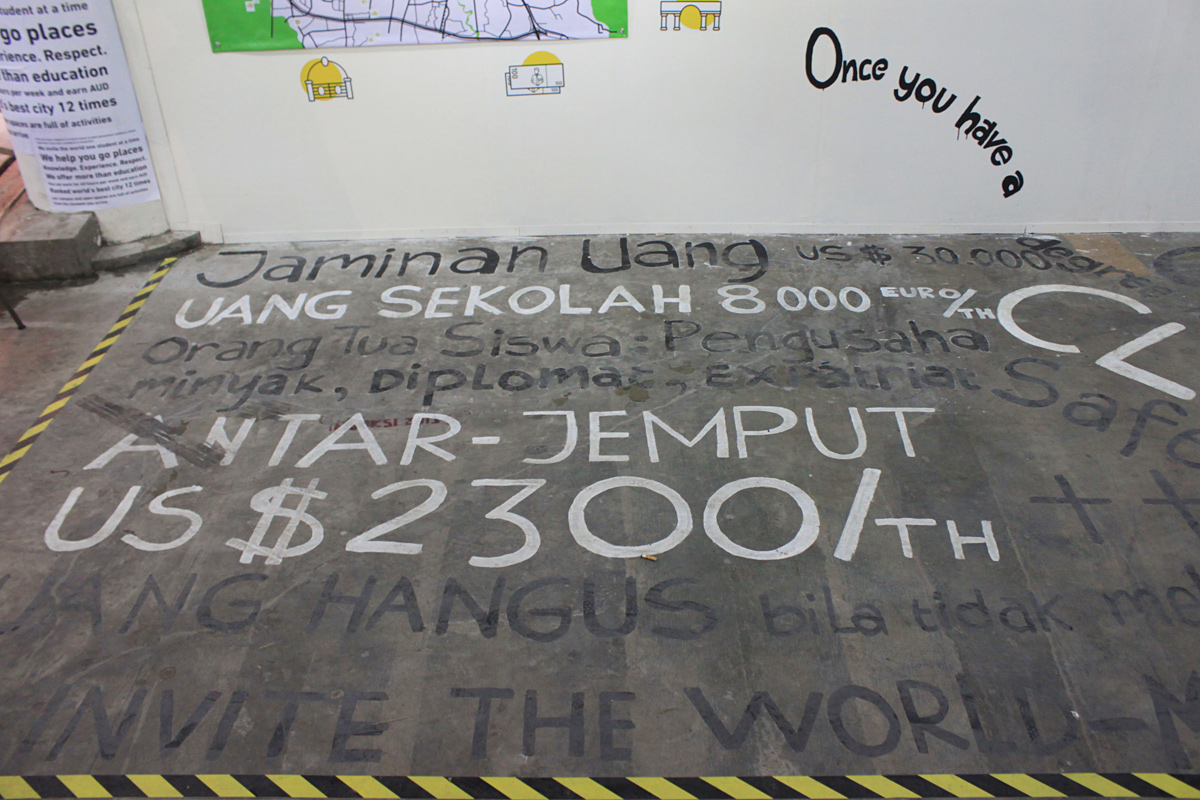 student at a time
go places
rience. Respect.
than education
urs per week and earn AUD
s best city 12 times
spaces are full of activities
arrive
We invite the world one student at a time
We help you go places
Knowledge. Experience. Respect.
We offer more than education
Ranked world's best city 12 times
100
Once you have a
Jaminan Uang US $ 30.000
UANG SEKOLAH 8000 EURO/TH
Orang Tua Siswa: Pengusaha
minyak, Diplomat, Expatriat
Safe
ANTAR-JEMPUT
US $ 2300/TH
++
UANG HANGUS bila tidak me
INVITE THE WORLD-M